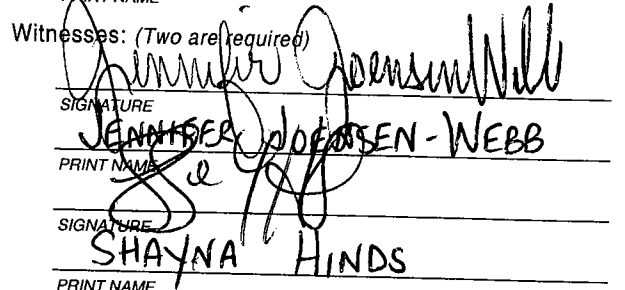 PRINT NAME
Witnesses: (Two are required)
Jennifer Joensen Webb
SIGNATURE
JENNIFER JOENSEN-WEBB
PRINT NAME
SIGNATURE
SHAYNA HINDS
PRINT NAME